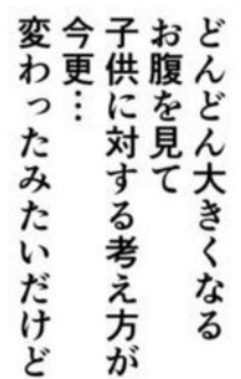 どんどん大きくなる
お腹を見て
子供に対する考え方が
今更…
変わったみたいだけど